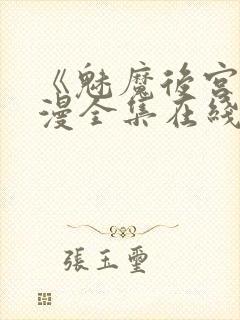 《魅魔後宮
漫全集在綫
張玉璽